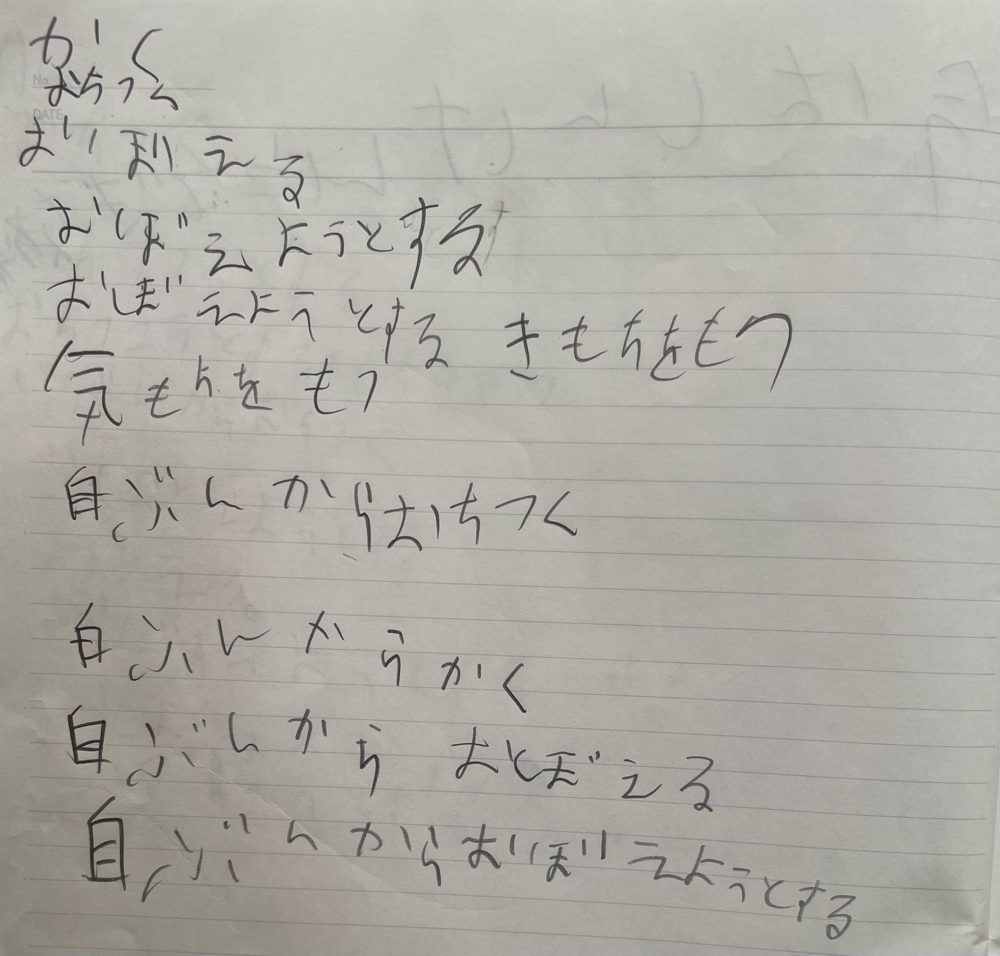 かく
おちつく
おぼえる
おぼえようとする
おぼえようとする きもちをもつ
気もちをもつ
自ぶんからおちつく
自ぶんからかく
自ぶんから おぼえる
自ぶんからおぼえようとする